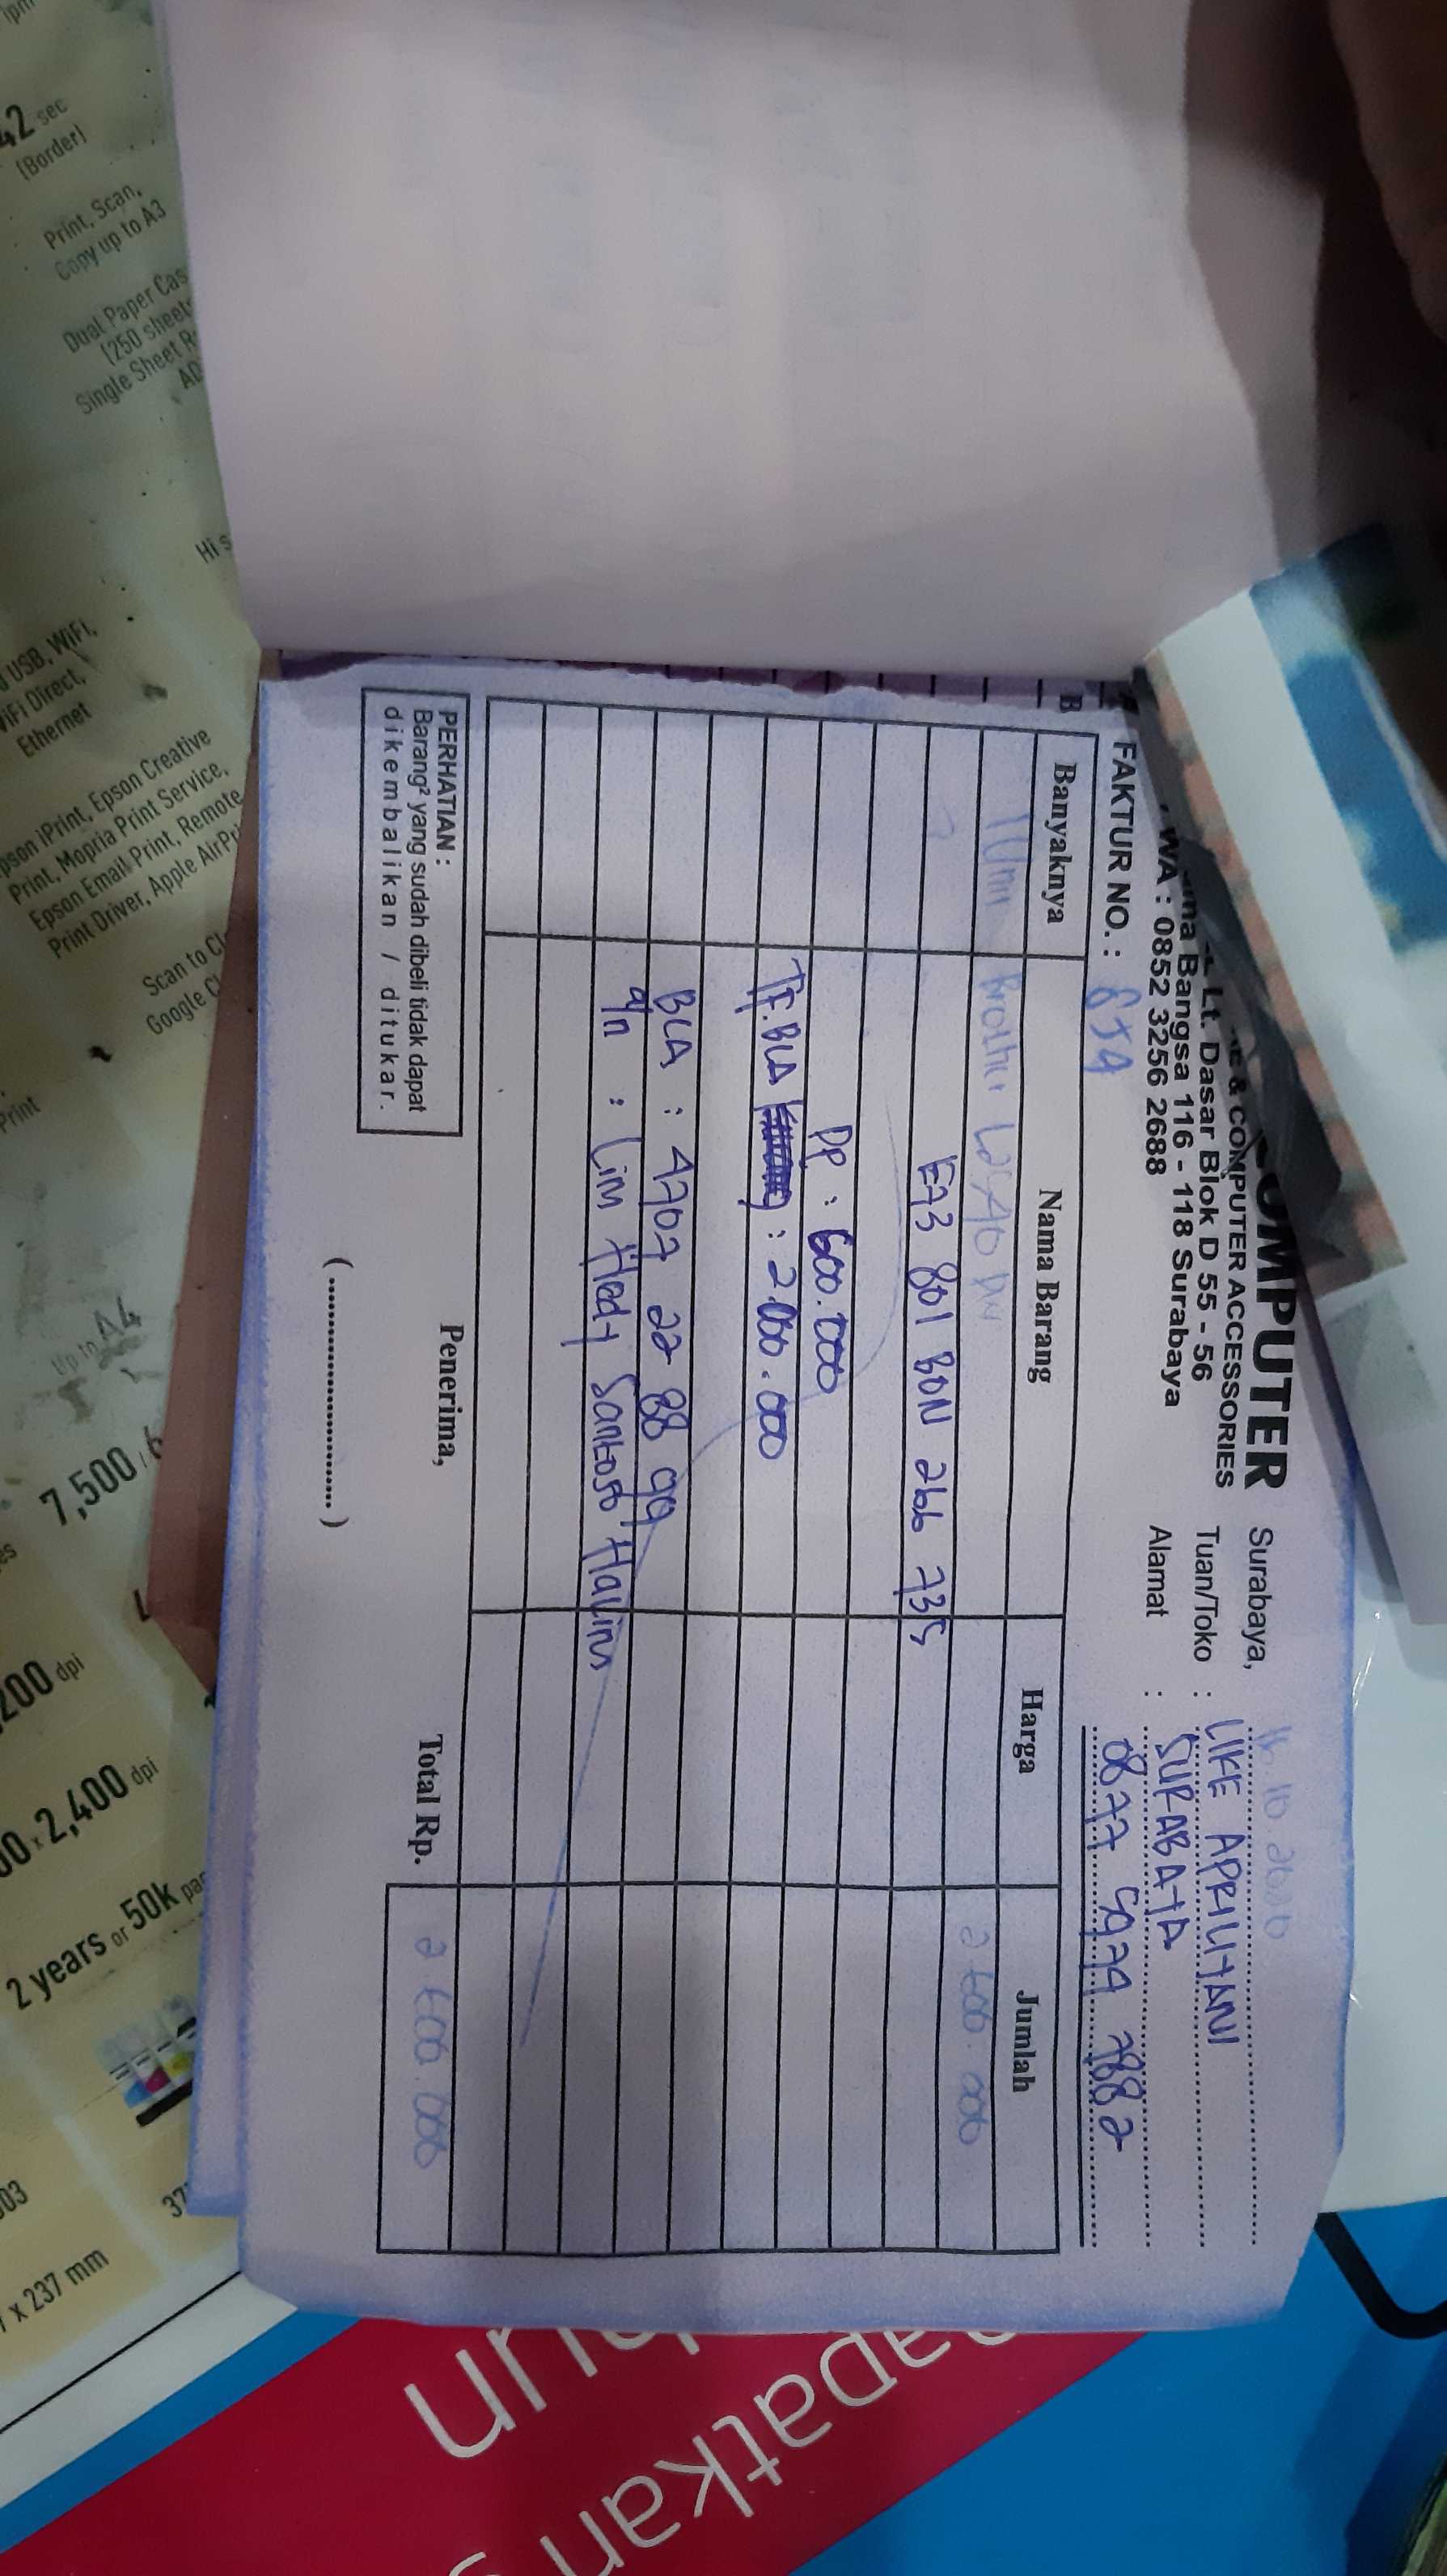 COMPUTER
& COMPUTER ACCESSORIES
Lt. Dasar Blok D 55 - 56
Bangsa 116 - 118 Surabaya
WA : 0852 3256 2688
Surabaya,
Tuan/Toko : LIKE APRILIYANI
Alamat : SURABAYA
0877 5979 7882
FAKTUR NO. :
Banyaknya Nama Barang Harga Jumlah
Brother 2.600.000
E73 801 BON 266 735
DP : 600.000
TF.BCA : 2.000.000
BCA : 4707 22 88 99
a/n : Lim Hedy Santoso
PERHATIAN :
Barang² yang sudah dibeli tidak dapat
dikembalikan / ditukar.
Penerima,
(........................)
Total Rp. 2.600.000
42 sec
(Border)
Print, Scan,
Copy up to A3
Dual Paper Cas
(250 sheet
Single Sheet
USB, WiFi,
WiFi Direct,
Ethernet
Epson iPrint, Epson Creative
Print, Mopria Print Service,
Epson Email Print, Remote
Print Driver, Apple AirPri
Scan to Cl
Google Cl
Print
Up to A4
7,500 / 6
200 dpi
00 x 2,400 dpi
2 years or 50k
03
37
x 237 mm
apatkan